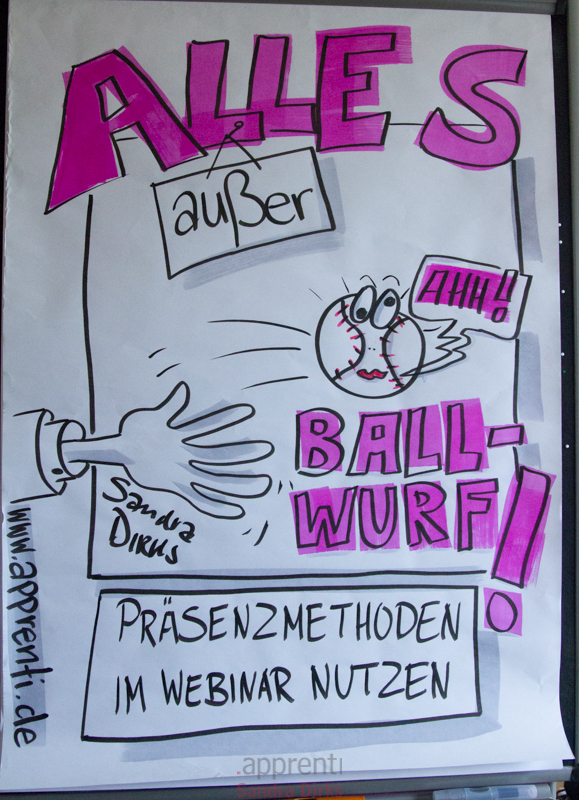 ALLES
außer
AHH!
BALL-
WURF!
Sandra
Dirks
PRÄSENZMETHODEN
IM WEBINAR NUTZEN
www.apprenti.de
.apprenti
Sandra Dirks